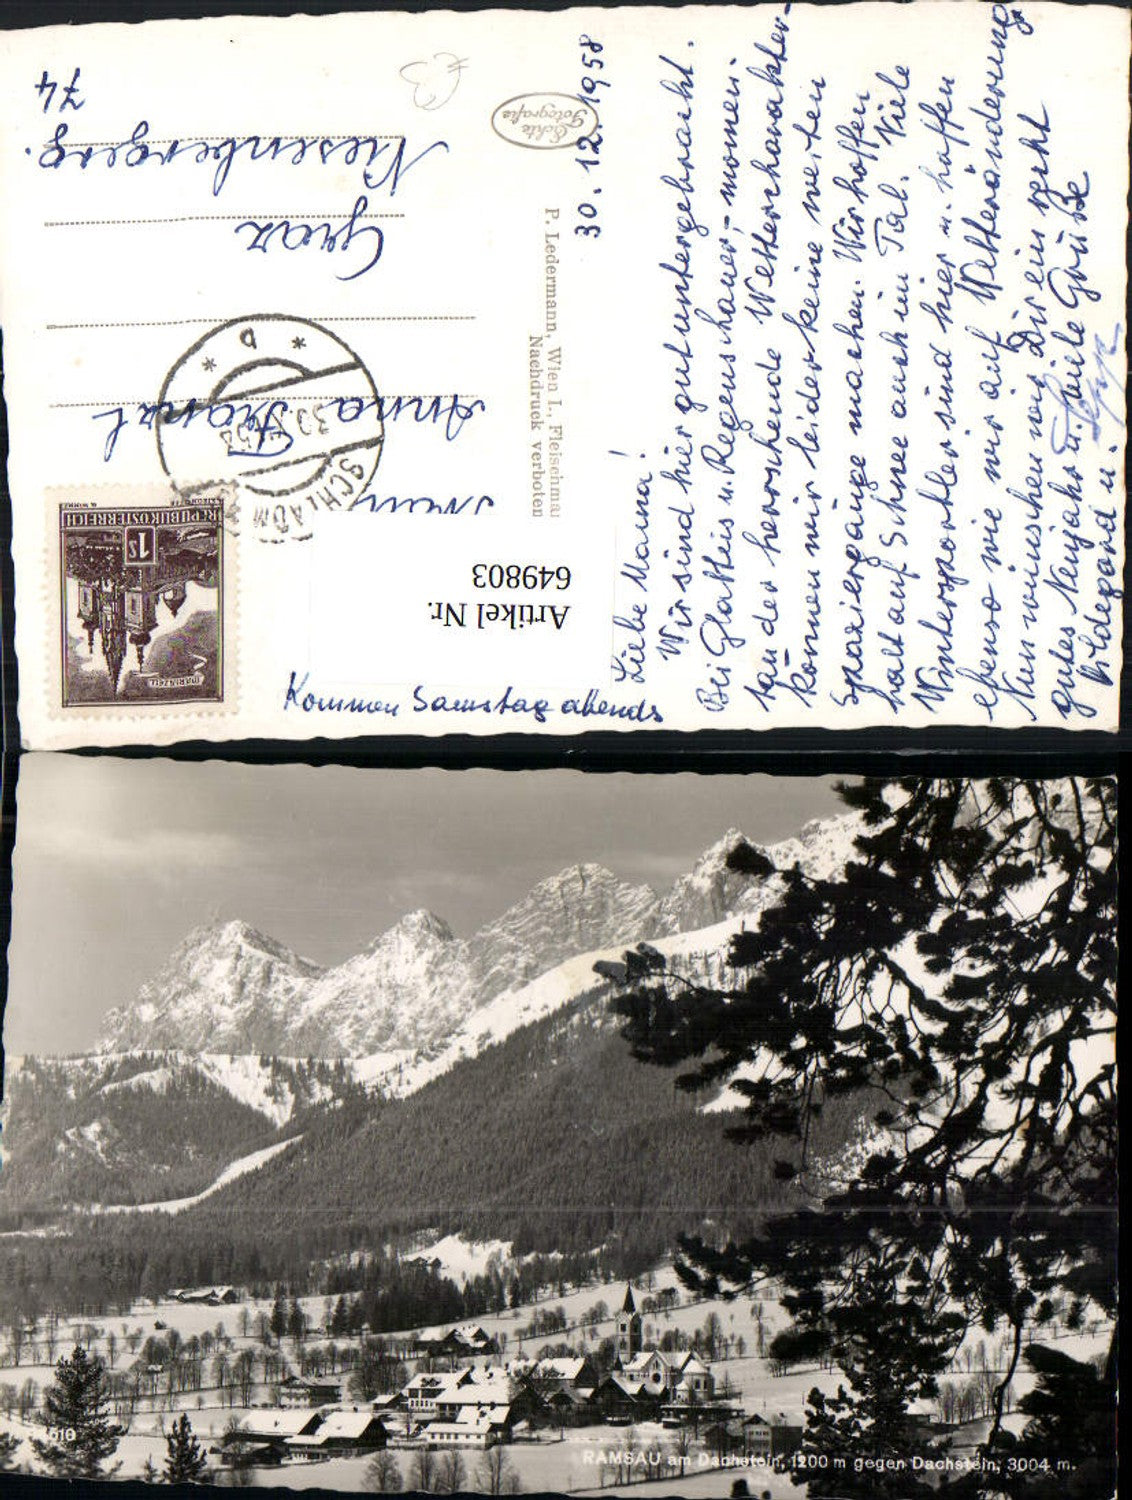 30.12.1958
Liebe Mama!
Wir sind hier gut untergebracht.
Bei Glatteis u. Regenschauer, momen-
tan der herrschende Wettercharakter
können wir leider keine weiten
Spaziergänge machen. Wir hoffen
halt auf Schnee auch im Tal. Viele
Wintersportler sind hier u. hoffen
ebenso wie wir auf Wetteränderung
Nun wünschen wir Dir ein recht
gutes Neujahr u. viele Grüße
Hildegard u.
Kommen Samstag abends
Echte
Fotografie
P. Ledermann, Wien I., Fleischma
Nachdruck verboten
Anna
Graz
Riesenbergerg.
74
SCHLADM
30
58
b
REPUBLIK ÖSTERREICH
1S
MARIAZELL
Artikel Nr.
649803
510
RAMSAU am Dachstein, 1200 m gegen Dachstein, 3004 m.